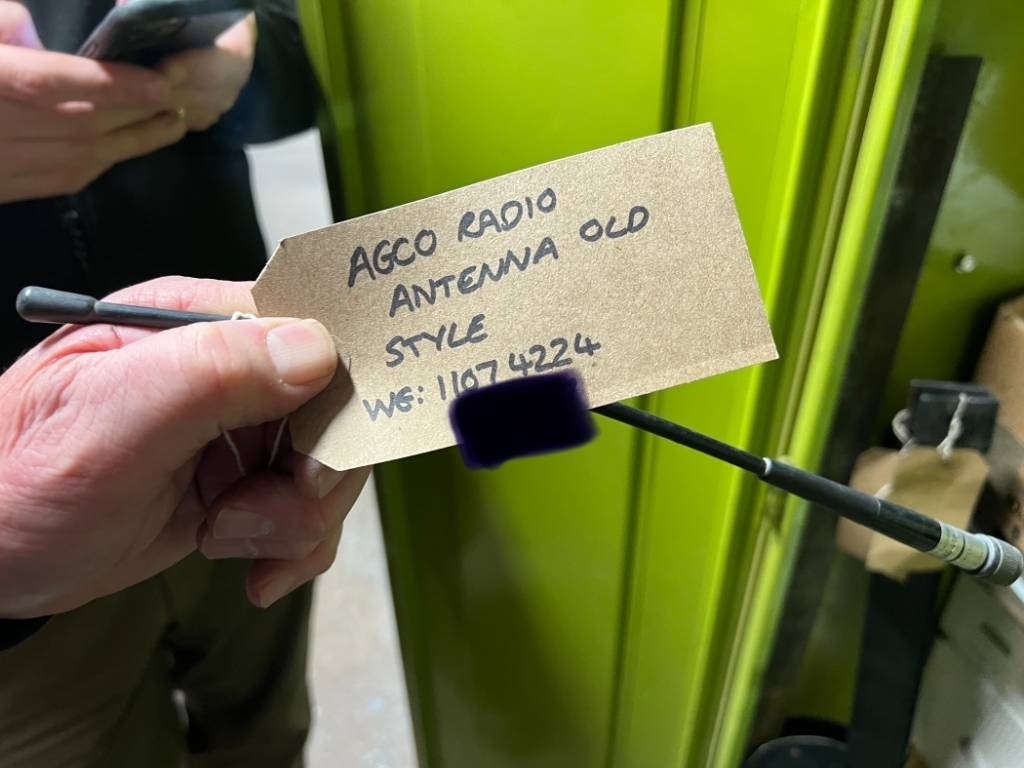 AGCO RADIO
ANTENNA OLD
STYLE
WE: 1107 4224